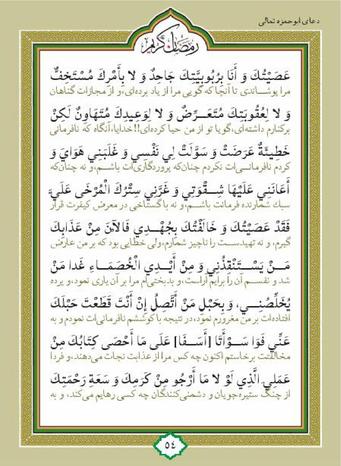 دعای ابوحمزه ثمالی
رمضان کریم
عَصَیْتُكَ وَ أَنَا بِرُبُوبِیَّتِكَ جَاحِدٌ وَ لا بِأَمْرِكَ مُسْتَخِفٌّ
مرا پوشاندی تا آنجا که گویی مرا از یاد برده‌ای، و از مجازات گناهان
وَ لا لِعُقُوبَتِكَ مُتَعَرِّضٌ وَ لا لِوَعِیدِكَ مُتَهَاوِنٌ لَکِنْ
برکنارم داشته‌ای، گویا تو از من حیا کرده‌ای!! خدایا، آنگاه که نافرمانی
خَطِیئَةٌ عَرَضَتْ وَ سَوَّلَتْ لِی نَفْسِی وَ غَلَبَنِی هَوَایَ وَ
کردم نافرمانی‌ات نکردم چنان‌که پروردگاری‌ات باشم، و نه چنان‌که
أَعَانَنِی عَلَیْهَا شِقْوَتِی وَ غَرَّنِی سِتْرُكَ الْمُرْخَی عَلَیَّ
سبك شمارنده فرمانت باشم، و نه با گستاخی در معرض کیفرت قرار
فَقَدْ عَصَیْتُكَ وَ خَالَفْتُكَ بِجُهْدِی فَالآنَ مِنْ عَذَابِكَ
گیرم، و نه تهیدستت را ناچیز شمارم، ولی خطایی بود که بر من عارض
مَنْ یَسْتَنْقِذُنِی وَ مِنْ أَیْدِی الْخُصَمَاءِ غَدا مَنْ
شد و نفسم آن را برایم آراست، و بدبختی‌ام مرا بر آن یاری نمود، و پرده
یُخَلِّصُنِی، وَ بِحَبْلِ مَنْ أَتَّصِلُ إِنْ أَنْتَ قَطَعْتَ حَبْلَكَ
افتاده‌ات بر من مغرورم نمود، در نتیجه با کوششم نافرمانی‌ات نمودم و به
عَنِّی فَوَا سَوْأَتَا [أَسَفَا] عَلَی مَا أَحْصَی کِتَابُكَ مِنْ
مخالفتت برخاستم اکنون چه کس مرا از عذابت نجات می‌دهند، و فردا
عَمَلِیَ الَّذِی لَوْ لا مَا أَرْجُو مِنْ کَرَمِكَ وَ سَعَةِ رَحْمَتِكَ
از چنگ ستیره‌جویان و دشمنی‌کنندگان چه کسی رهایم می‌کند، و به
٥٤